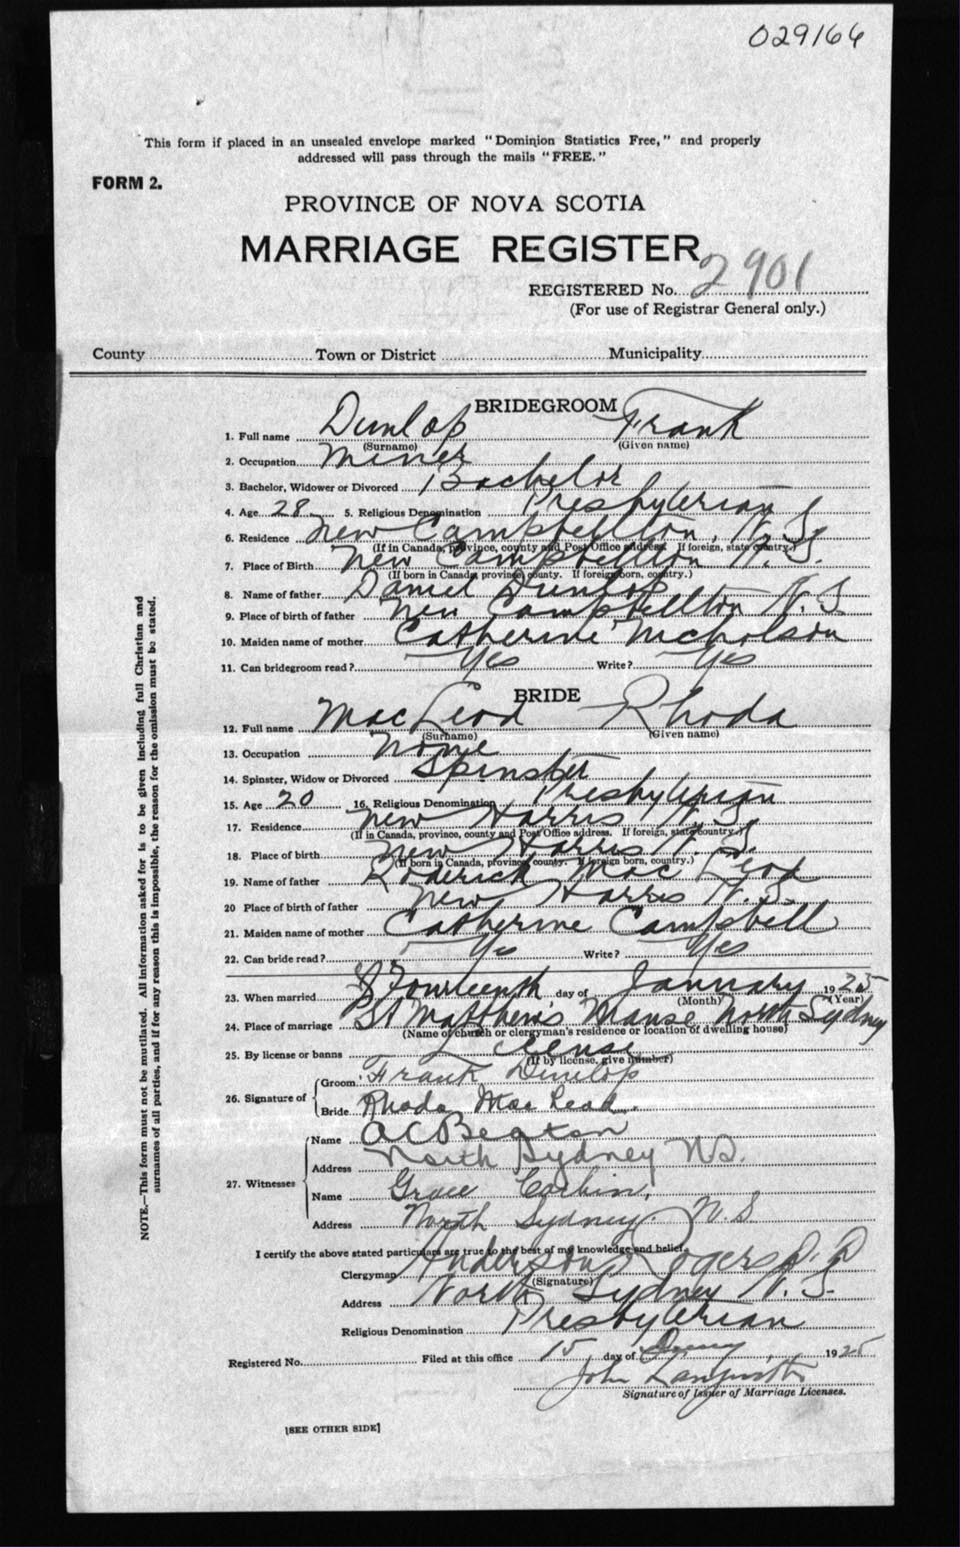 029164
This form if placed in an unsealed envelope marked "Dominion Statistics Free," and properly
addressed will pass through the mails "FREE."
FORM 2.
PROVINCE OF NOVA SCOTIA
MARRIAGE REGISTER
REGISTERED No. 2901
(For use of Registrar General only.)
County Town or District Municipality
BRIDEGROOM
1. Full name Dunlop Frank
(Surname) (Given name)
2. Occupation Miner
3. Bachelor, Widower or Divorced Bachelor
4. Age 28 5. Religious Denomination Presbyterian
6. Residence New Campbellton, N.S.
(If in Canada, province, county and Post Office address. If foreign, state country.)
7. Place of Birth New Campbellton N.S.
(If born in Canada, province, county. If foreign born, country.)
8. Name of father Daniel Dunlop
9. Place of birth of father New Campbellton N.S
10. Maiden name of mother Catherine Nicholson
11. Can bridegroom read? Yes Write? Yes
BRIDE
12. Full name MacLeod Rhoda
(Surname) (Given name)
13. Occupation None
14. Spinster, Widow or Divorced Spinster
15. Age 20 16. Religious Denomination Presbyterian
17. Residence New Harris N.S.
(If in Canada, province, county and Post Office address. If foreign, state country.)
18. Place of birth New Harris N.S.
(If born in Canada, province, county. If foreign born, country.)
19. Name of father Roderick MacLeod
20 Place of birth of father New Harris N.S.
21. Maiden name of mother Catherine Campbell
22. Can bride read? Yes Write? Yes
23. When married Fourteenth day of January 1925
(Month) (Year)
24. Place of marriage St Matthew's Manse North Sydney
(Name of church or clergyman's residence or location of dwelling house)
25. By license or banns License
(If by license, give number)
26. Signature of Groom Frank Dunlop
Bride Rhoda MacLeod.
27. Witnesses Name A C Beaton
Address North Sydney N.S.
Name Grace Corbin,
Address North Sydney N.S
I certify the above stated particulars are true to the best of my knowledge and belief.
Clergyman Anderson Rogers D.D
(Signature)
Address North Sydney N.S.
Religious Denomination Presbyterian
Registered No. Filed at this office 15 day of 1925
John
Signature of Issuer of Marriage Licenses.
[SEE OTHER SIDE]
NOTE.—This form must not be mutilated. All information asked for is to be given including full Christian and
surnames of all parties, and if for any reason this is impossible, the reason for the omission must be stated.